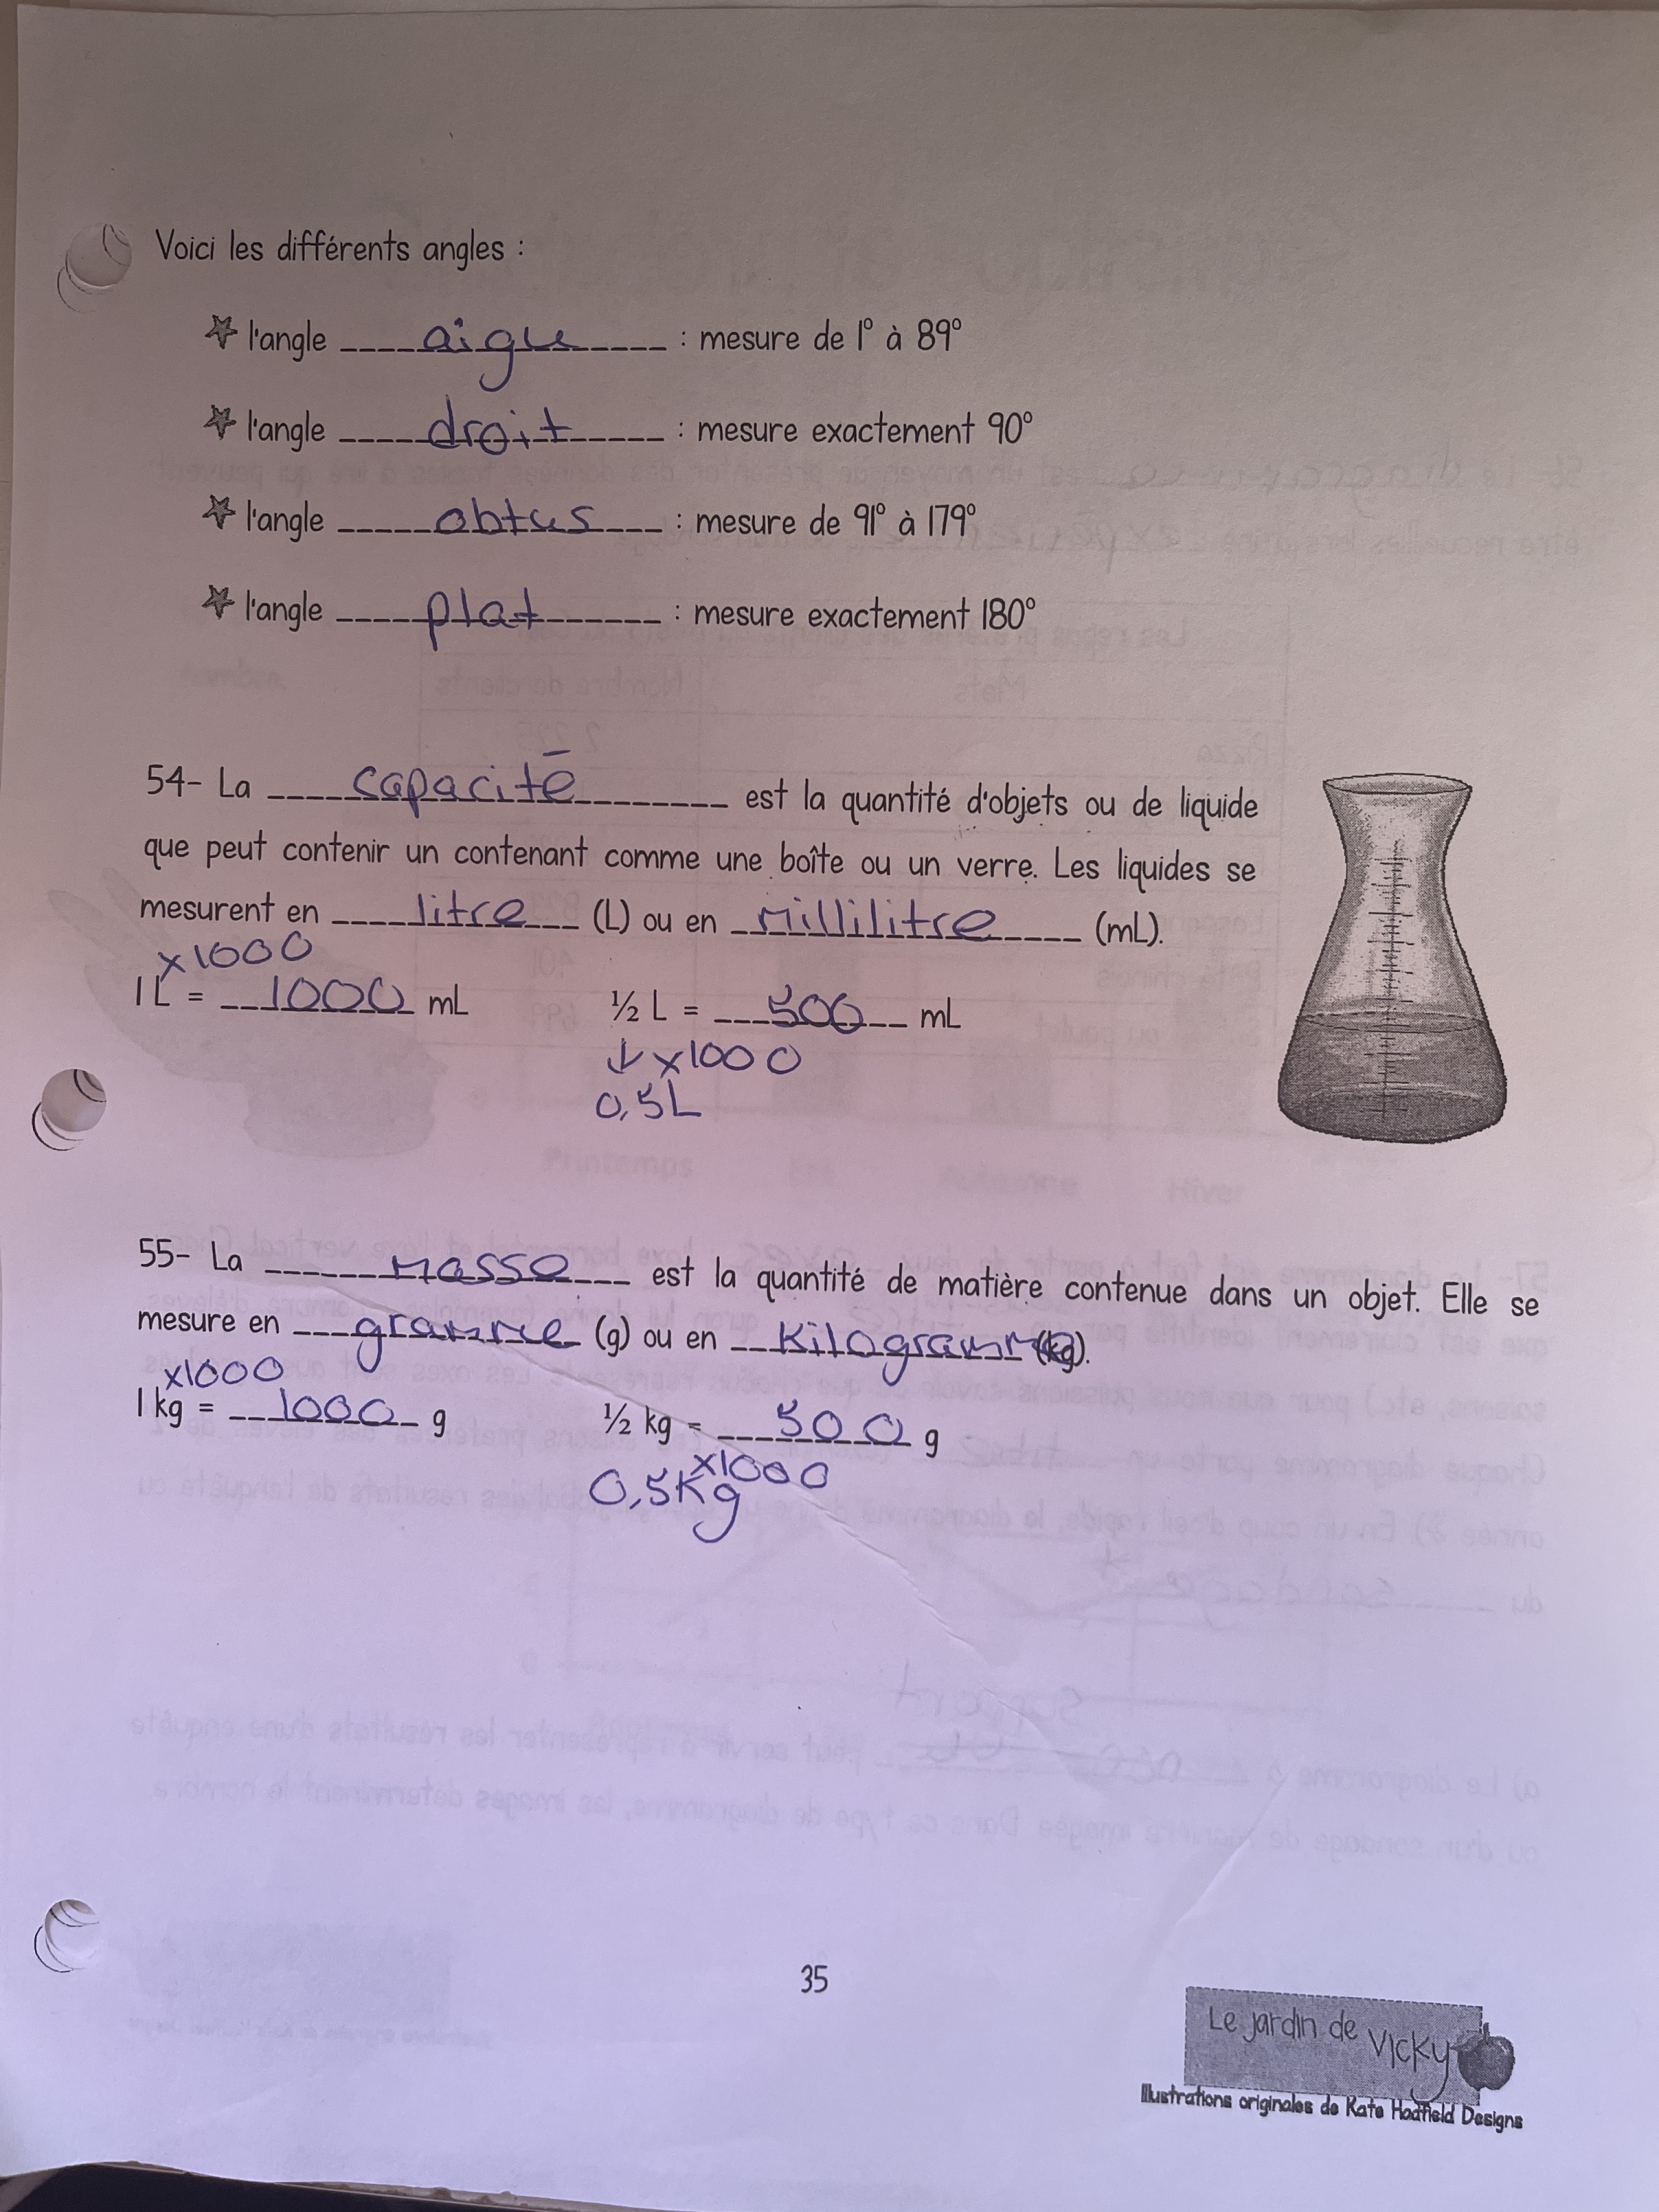 Voici les différents angles :
l'angle ____aigu____ : mesure de 1° à 89°
l'angle ____droit____ : mesure exactement 90°
l'angle ____obtus____ : mesure de 91° à 179°
l'angle ____plat____ : mesure exactement 180°
54- La ____capacité____ est la quantité d'objets ou de liquide
que peut contenir un contenant comme une boîte ou un verre. Les liquides se
mesurent en ____litre____ (L) ou en ____millilitre____ (mL).
x1000
1 L = __1000__ mL ½ L = ___500___ mL
↓ x1000
0,5L
55- La ____masse____ est la quantité de matière contenue dans un objet. Elle se
mesure en ___gramme___ (g) ou en ___Kilogramme (kg).
x1000
1 kg = ___1000__ g ½ kg = ___500___ g
x1000
0,5Kg
35
Le jardin de Vicky
Illustrations originales de Kate Hadfield Designs